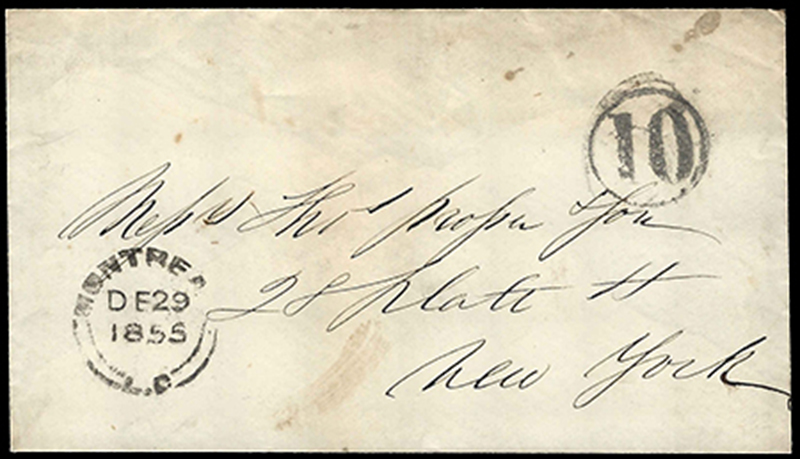 10
Messrs Thos prosser & Son
MONTREA
DE 29
1855
L.C
28 Platt St
New York